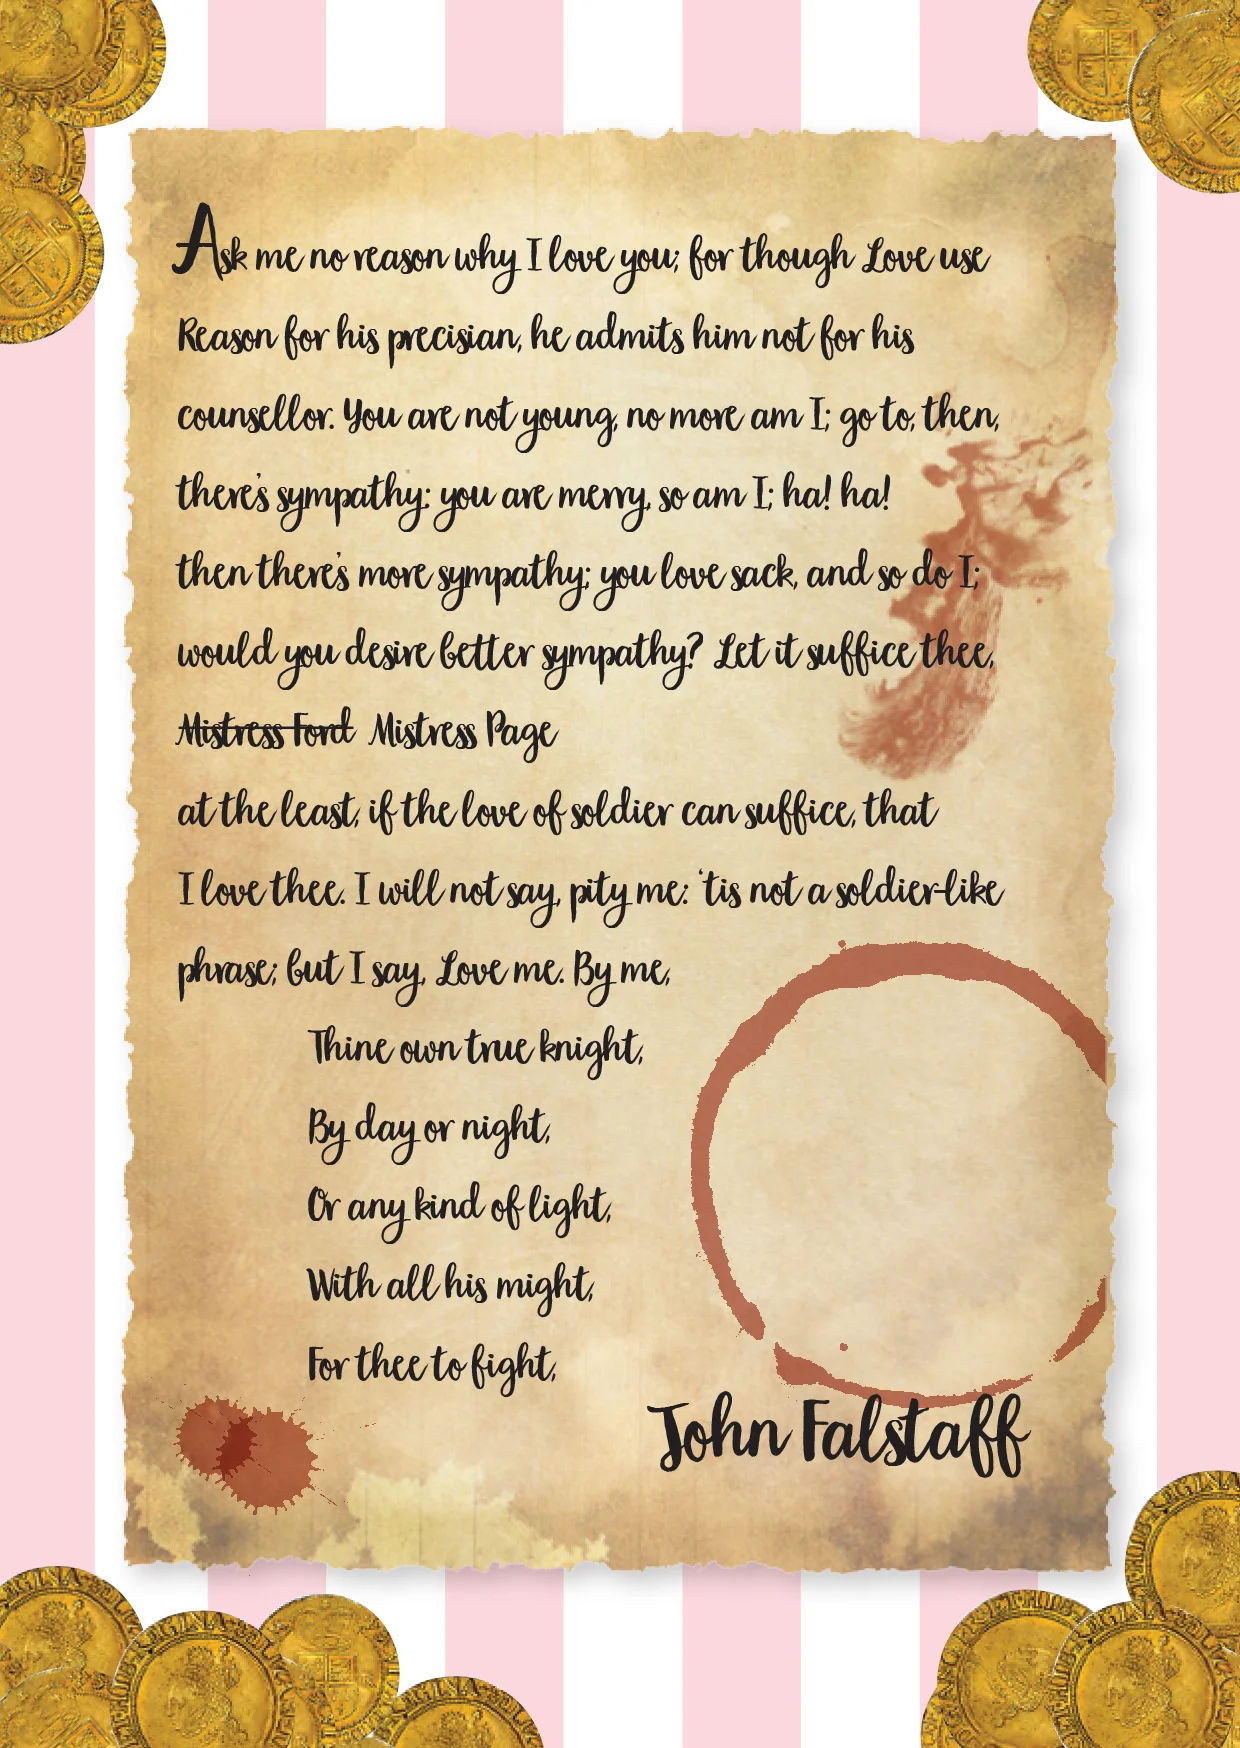 Ask me no reason why I love you; for though Love use
Reason for his precisian, he admits him not for his
counsellor. You are not young, no more am I; go to, then,
there's sympathy: you are merry, so am I; ha! ha!
then there's more sympathy; you love sack, and so do I;
would you desire better sympathy? Let it suffice thee,
Mistress Ford Mistress Page
at the least, if the love of soldier can suffice, that
I love thee. I will not say, pity me: 'tis not a soldier-like
phrase; but I say, Love me. By me,
Thine own true knight,
By day or night,
Or any kind of light,
With all his might,
For thee to fight,
John Falstaff